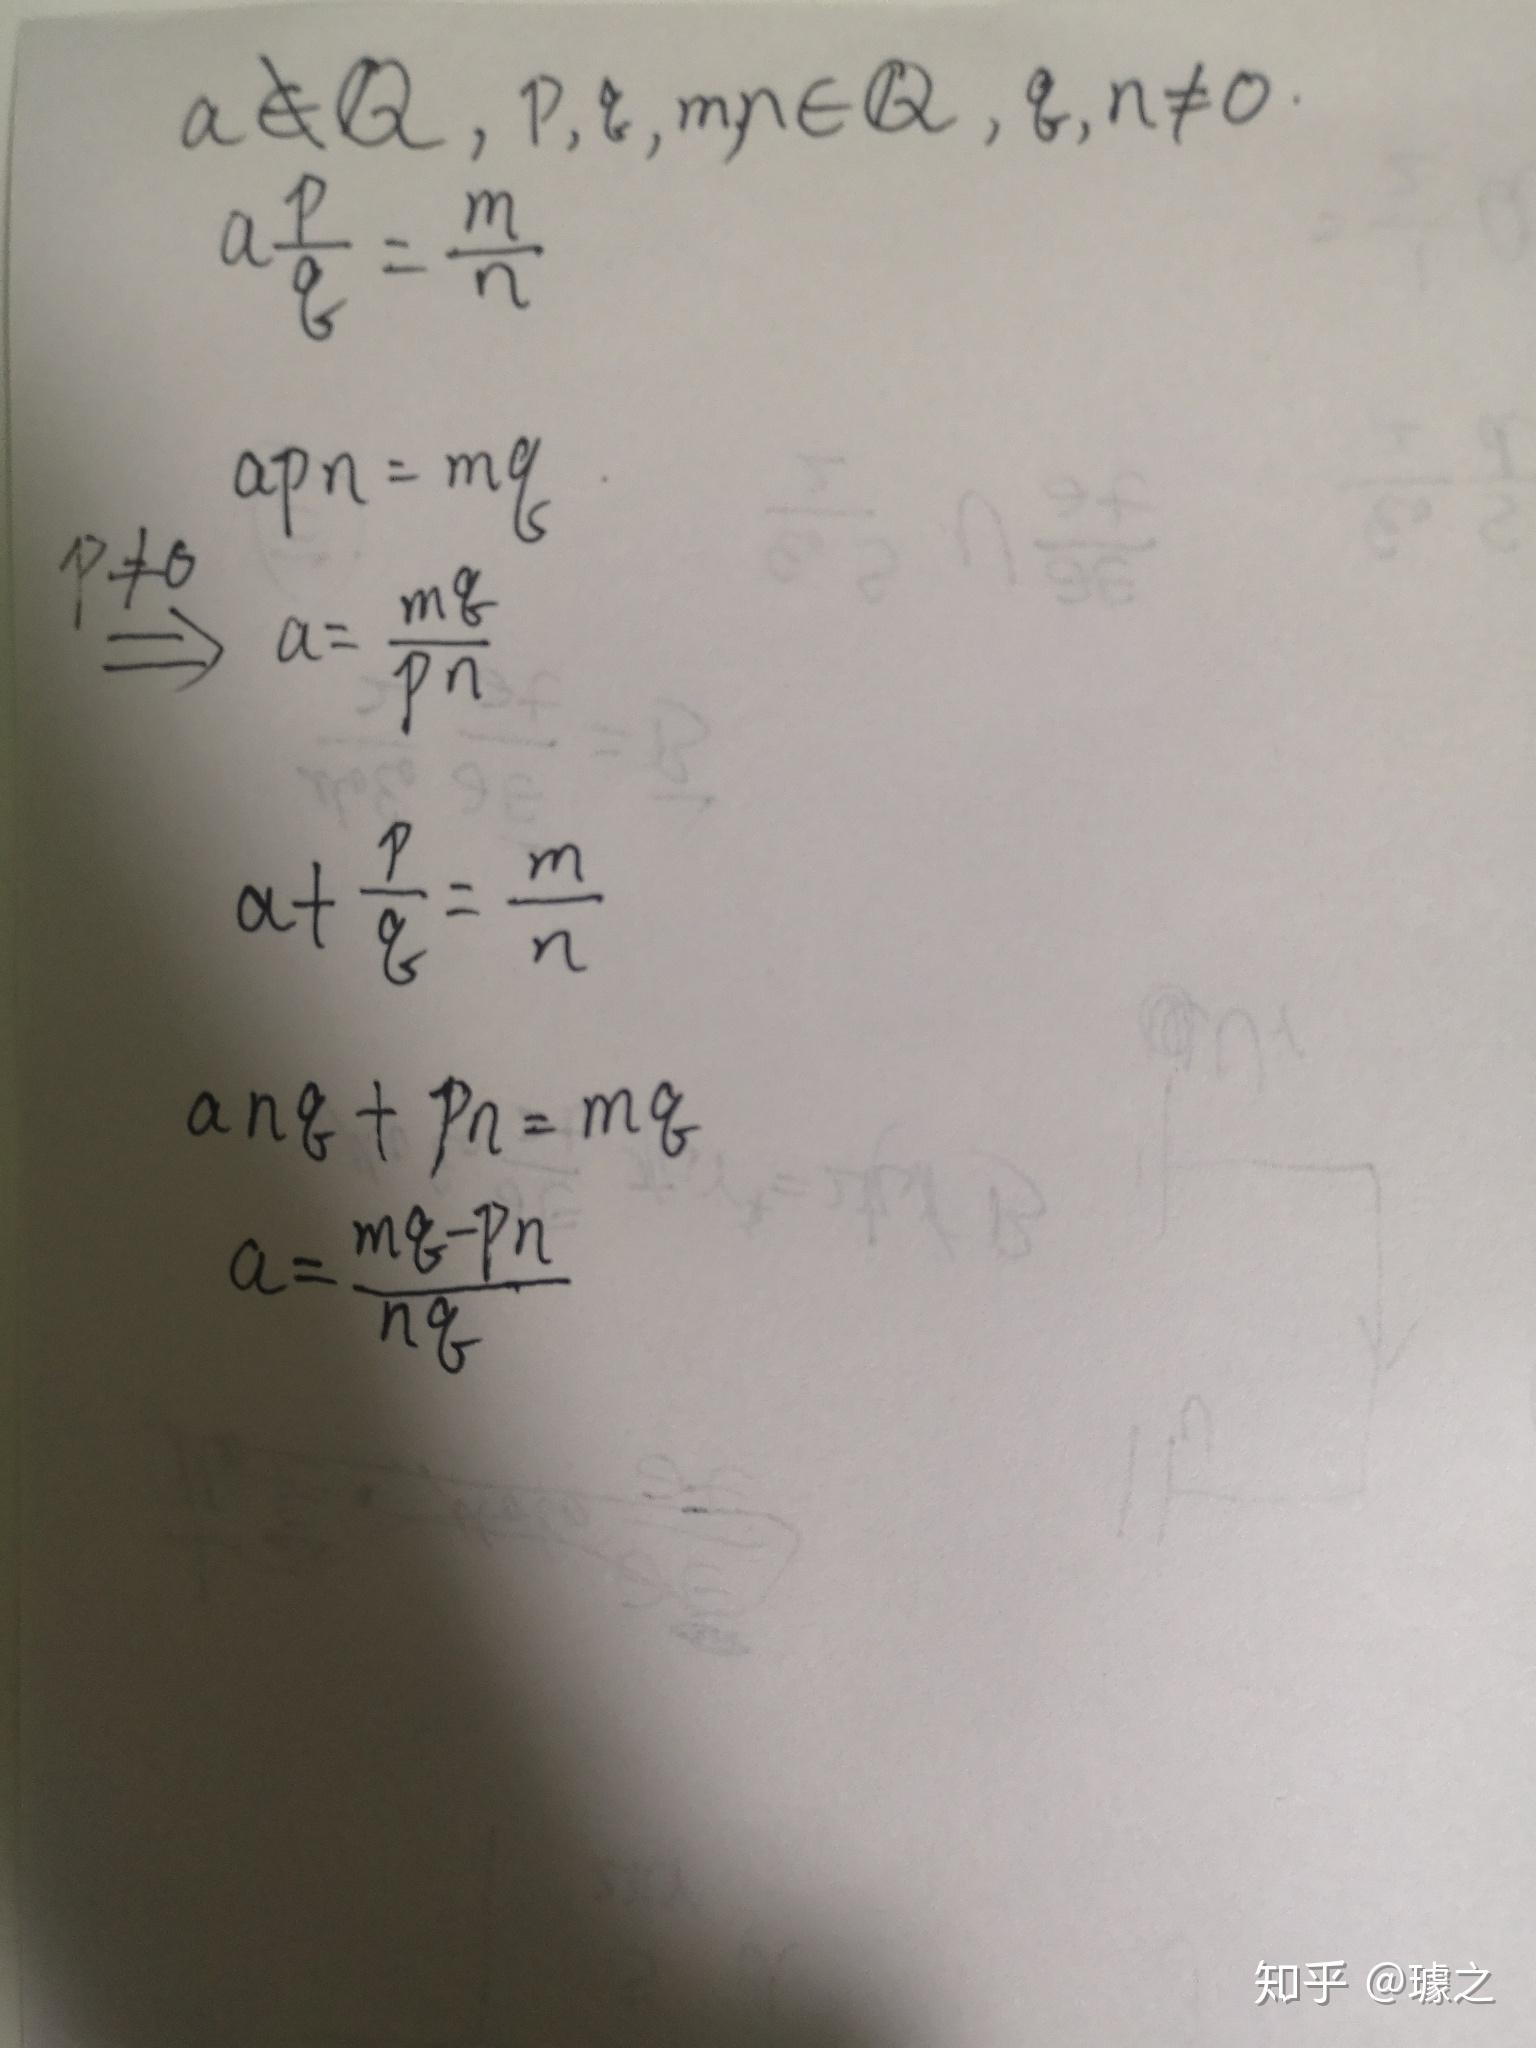 a ∉ ℚ, p, q, m, n ∈ ℚ, q, n ≠ 0.
a p/q = m/n
apn = mq
p ≠ 0
⇒ a = mq/pn
a + p/q = m/n
anq + pn = mq
a = (mq - pn)/nq
知乎 @璩之